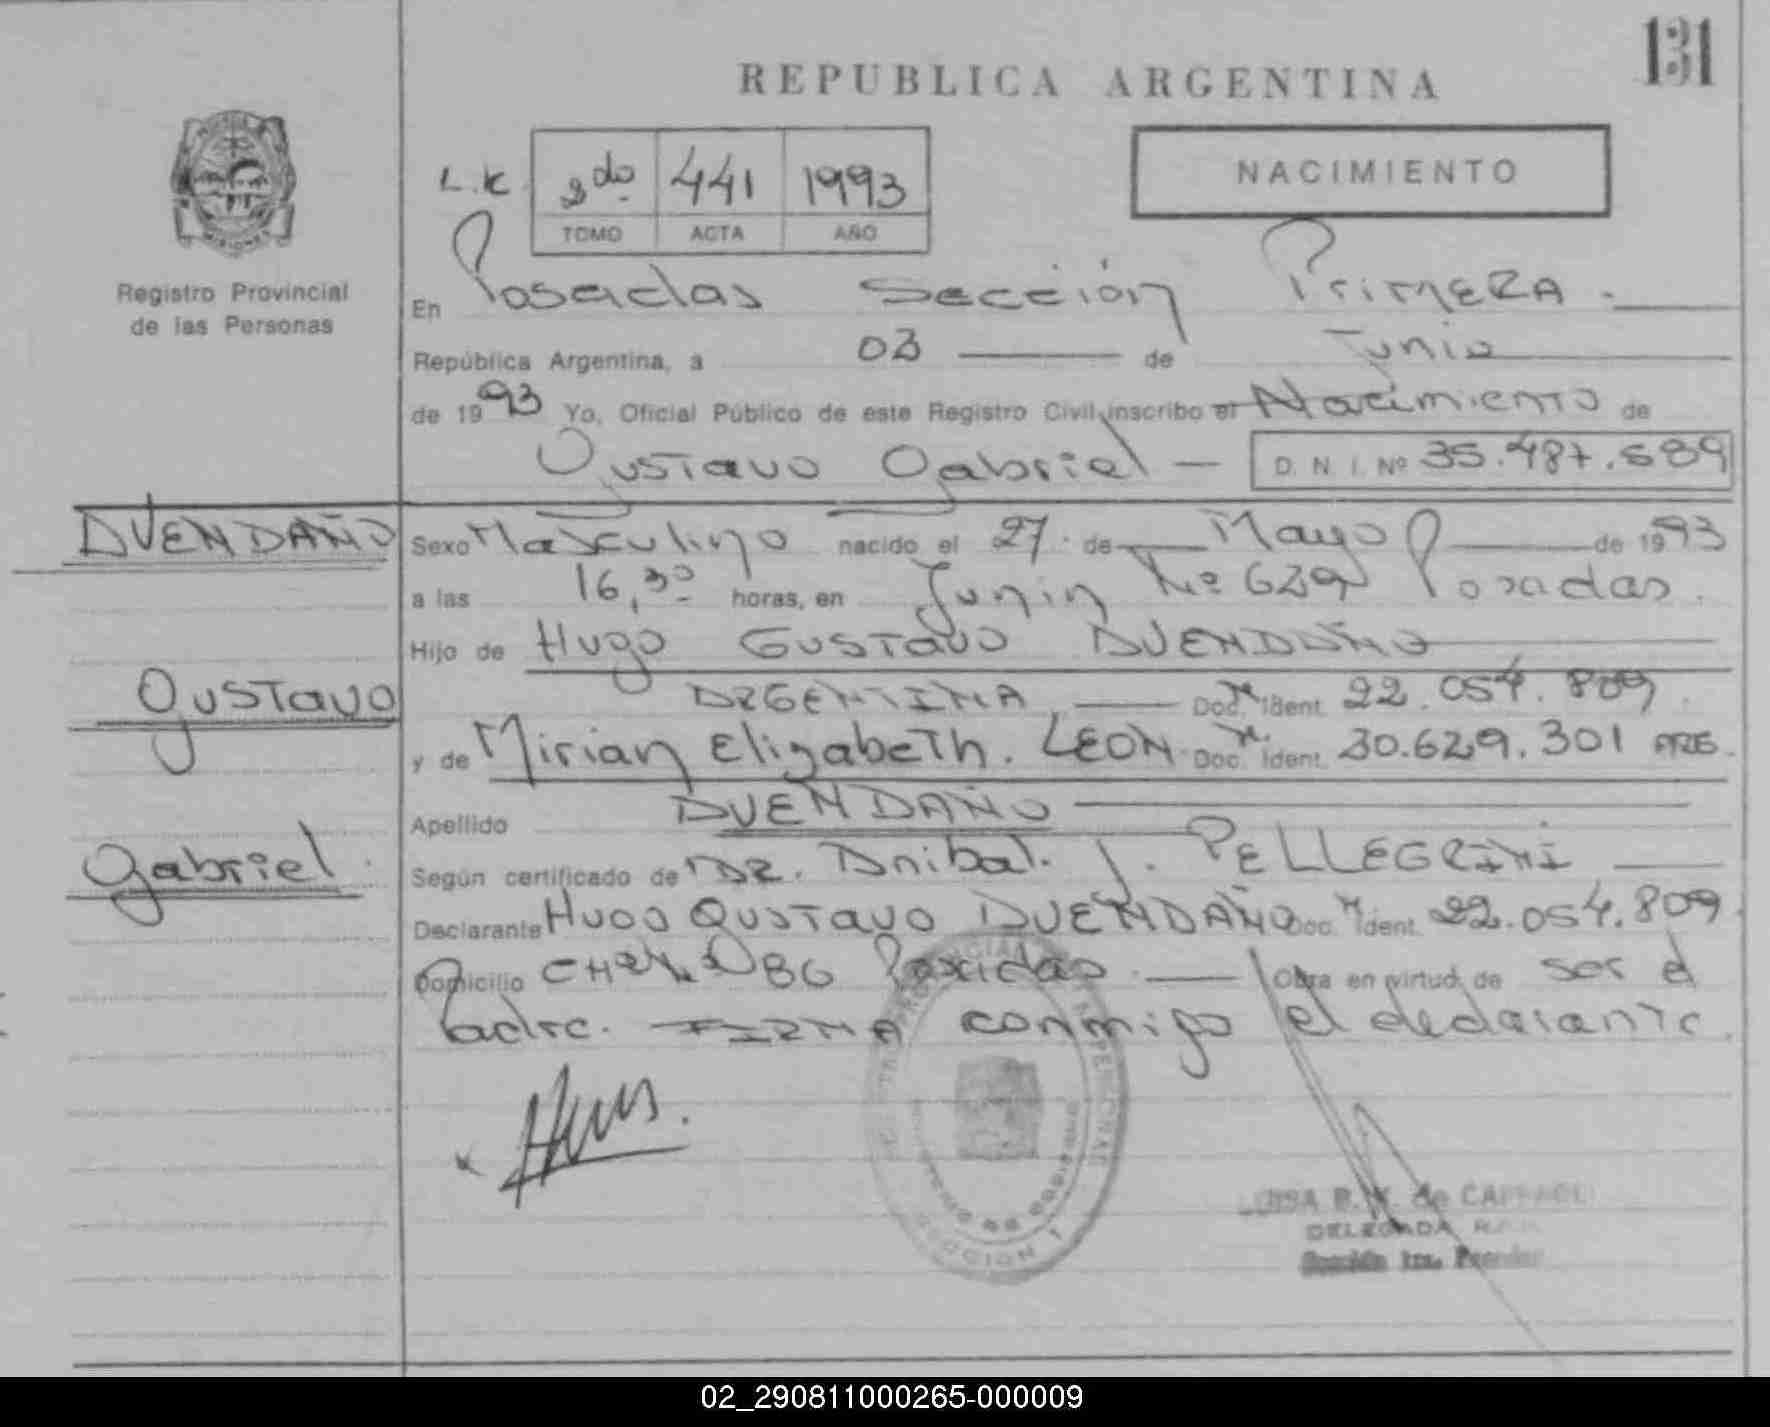 131
REPUBLICA ARGENTINA
L.K 2do 441 1993
TOMO ACTA AÑO
NACIMIENTO
MISIONES
Registro Provincial
de las Personas
En Posadas Sección Primera.
República Argentina, a 03 de Junio
de 1993 Yo, Oficial Público de este Registro Civil inscribo el Nacimiento de
Gustavo Gabriel — D. N. I. Nº 35.487.589
AVENDAÑO
Sexo Masculino nacido el 27 de Mayo de 1993
a las 16,30 horas, en Junin Nº 639 Posadas.
Hijo de Hugo GUSTAVO AVENDAÑO
Gustavo
ARGENTINA — Doc. Ident. 22.054.809.
y de Mirian ElizabeTh. LEON Doc. Ident. 30.629.301 ARG.
Apellido AVENDAÑO
Gabriel.
Según certificado de DR. Anibal. J. PELLEGRINI
Declarante HUGO GUSTAVO AVENDAÑO Doc. Ident. 22.054.809
Domicilio 86 Posadas. — Obra en virtud de ser el
Padre. FIRMA conmigo el declarante
SECCION 1
LUISA B. de
DELEGADA
Sección 1ra. Posadas
02_290811000265-000009